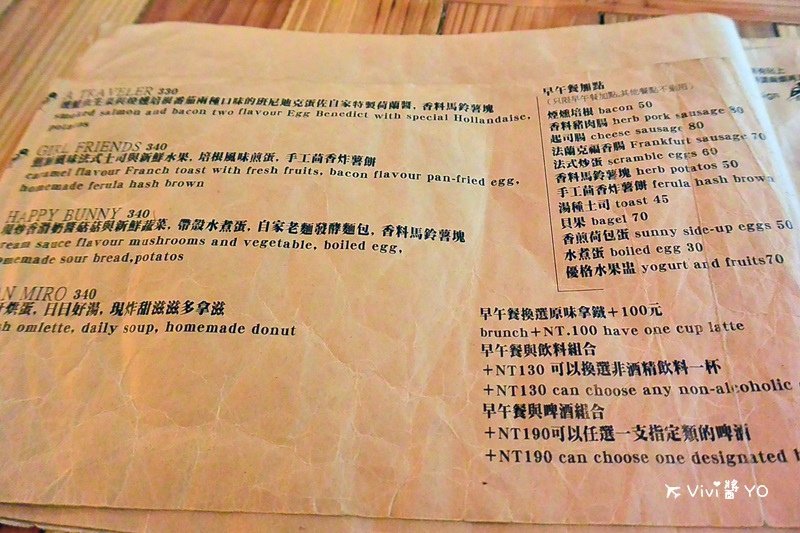 A TRAVELER 330
兩種口味的班尼迪克蛋佐自家特製荷蘭醬, 香料馬鈴薯塊
smoked salmon and bacon two flavour Egg Benedict with special Hollandaise,
potatos
GIRL FRIENDS 340
風味法式土司與新鮮水果, 培根風味煎蛋, 手工茴香炸薯餅
caramel flavour Franch toast with fresh fruits, bacon flavour pan-fried egg,
homemade ferula hash brown
HAPPY BUNNY 340
現炒香濃奶醬菇菇與新鮮蔬菜, 帶殼水煮蛋, 自家老麵發酵麵包, 香料馬鈴薯塊
ream sauce flavour mushrooms and vegetable, boiled egg,
memade sour bread,potatos
AN MIRO 340
烘蛋, 日日好湯, 現炸甜滋滋多拿滋
sh omlette, daily soup, homemade donut
早午餐加點
(只限早午餐加點,其他餐點不適用)
煙燻培根 bacon 50
香料豬肉腸 herb pork sausage 80
起司腸 cheese sausage 80
法蘭克福香腸 Frankfurt sausage 70
法式炒蛋 scramble eggs 60
香料馬鈴薯塊 herb potatos 50
手工茴香炸薯餅 ferula hash brown
湯種土司 toast 45
貝果 bagel 70
香煎荷包蛋 sunny side-up eggs 50
水煮蛋 boiled egg 30
優格水果盅 yogurt and fruits70
早午餐換選原味拿鐵+100元
brunch+NT.100 have one cup latte
早午餐與飲料組合
+NT130 可以換選非酒精飲料一杯
+NT130 can choose any non-alcoholic
早午餐與啤酒組合
+NT190可以任選一支指定類的啤酒
+NT190 can choose one designated b
Vivi醬 YO